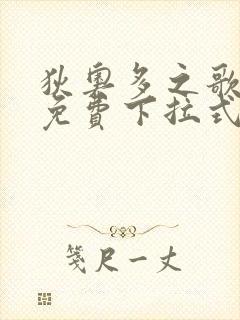 狄奧多之歌
免費下拉式
箋尺一丈